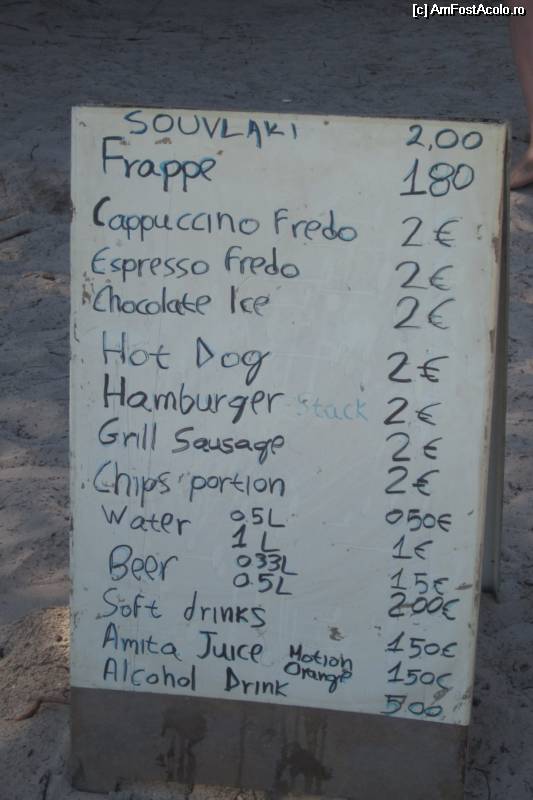 [c] AmFostAcolo.ro
SOUVLAKI 2,00
Frappe 180
Cappuccino Fredo 2€
Espresso Fredo 2€
Chocolate Ice 2€
Hot Dog 2€
Hamburger Stack 2€
Grill Sausage 2€
Chips portion 2€
Water 05L 050€
1L 1€
Beer 033L 15€
0.5L 200€
Soft drinks 150€
Amita Juice Motion Orange 150€
Alcohol Drink 500